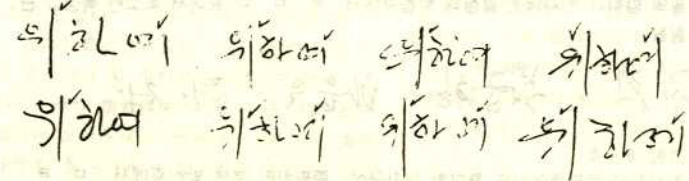 위하여 위하여 위하여 위하여
위하여 위하여 위하여 위하여